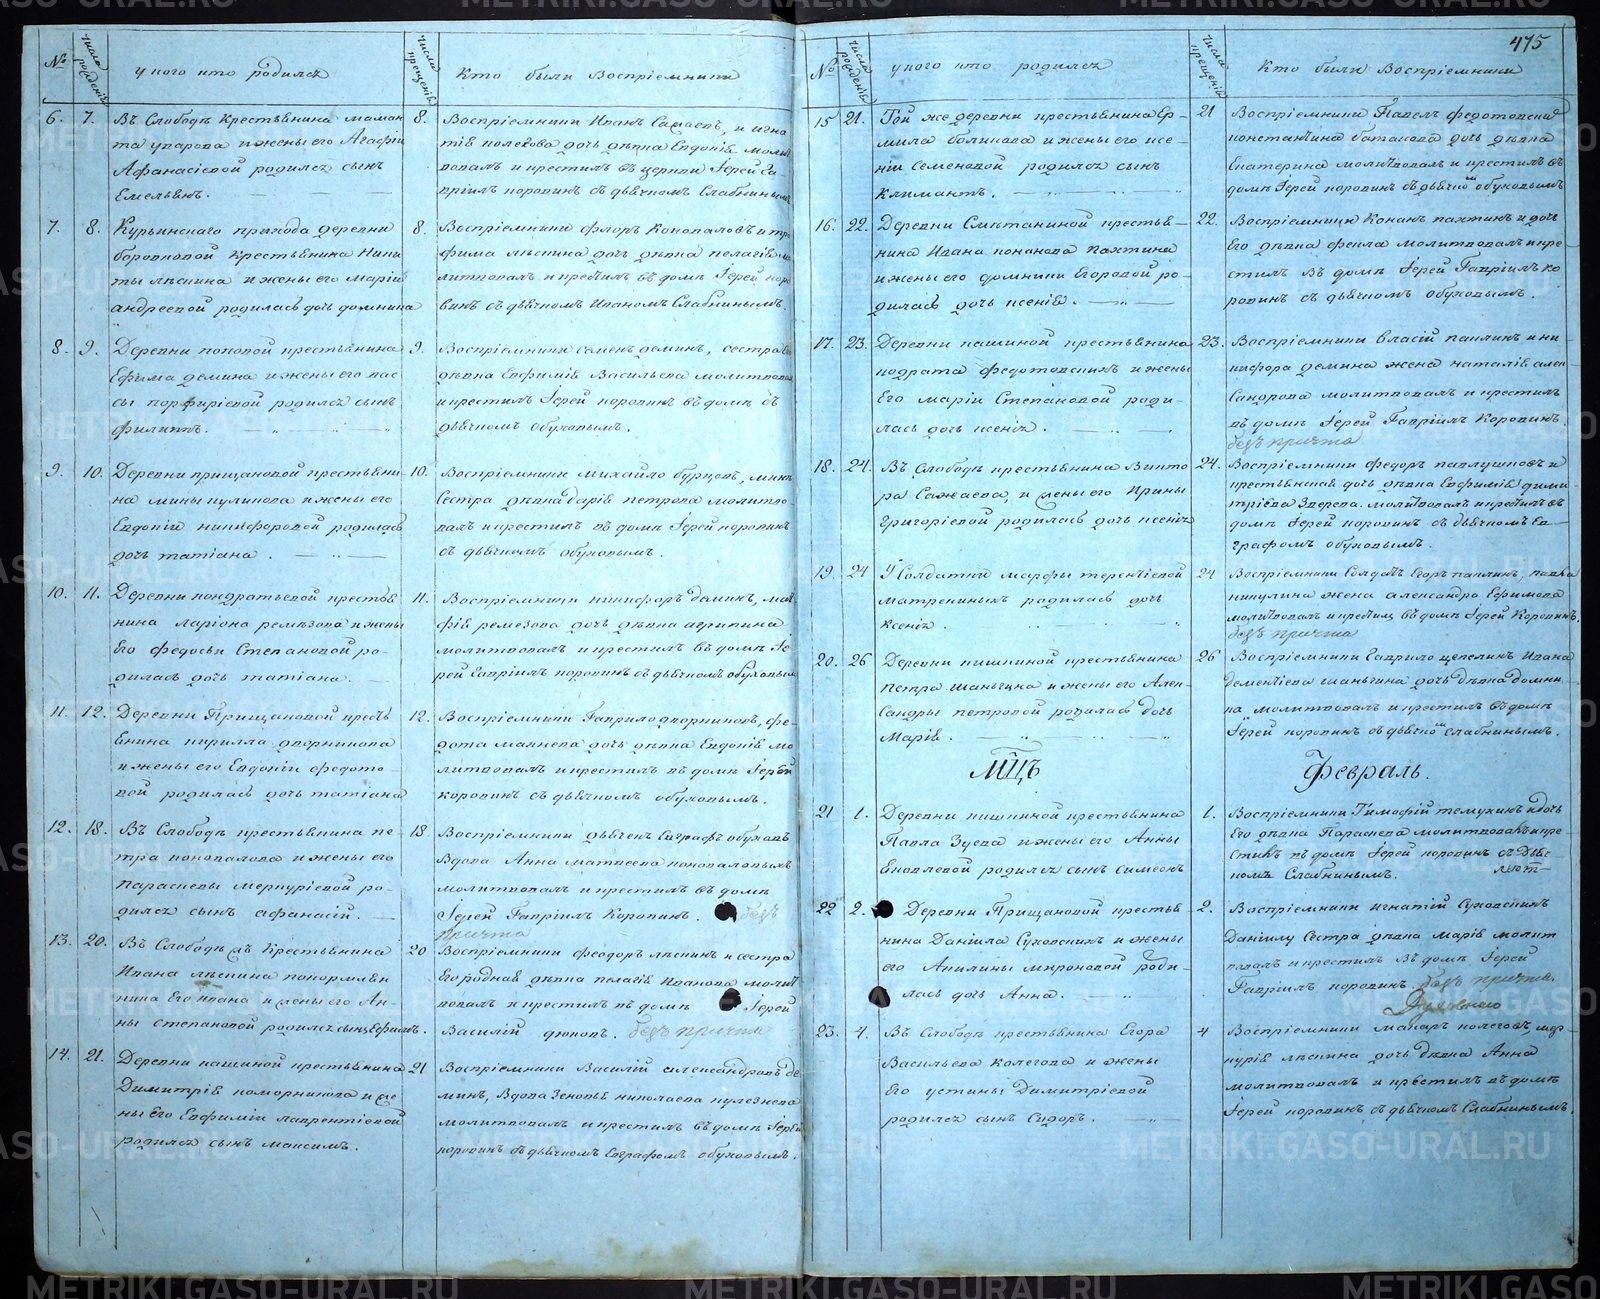 475
№ числа рожденія у кого кто родился числа крещенія Кто были Воспріемники
6. 7. Въ Слободѣ Крестьянина Маман
та уварова и жены его Агафіи
Афанасіевой родился сынъ
Емельянъ.
8. Воспріемники Иванъ Сажаевъ, и игна
тія колегова дочь дѣвка Евдокія молит
вовалъ и крестилъ въ церкви Іерей Га
вріилъ коровинъ съ дьячкомъ Слабнинымъ
7. 8. Курьинскаго прихода деревни
боровковой Крестьянина Ники
ты лѣскина и жены его Маріи
андреевой родилась дочь домнина
8. Воспріемники флоръ Коновалов и тро
фима лѣскина дочь дѣвка пелагія мо
литвовалъ и крестилъ въ домѣ Іерей коро
винъ съ дьячкомъ Иваномъ Слабнинымъ.
8. 9. Деревни поповой крестьянина
Ефима демина и жены его вас
сы порфиріевой родился сынъ
филиппъ.
9. Воспріемники семенъ деминъ, сестра его
дѣвка Евфимія Васильева молитвовалъ
и крестилъ Іерей коровинъ въ домѣ съ
дьячкомъ обуховымъ.
9. 10. Деревни прищановой крестьяни
на мины куликова и жены его
Евдокіи никифоровой родилась
дочь татіана.
10. Воспріемники михайло бурцовъ, мины
сестра дѣвка дарія петрова молитво
валъ и крестилъ въ домѣ Іерей коровинъ
съ дьячкомъ обуховымъ.
10. 11. Деревни кондратьевой крестья
нина Ларіона ремѣзова и жены
Его федосьи Степановой ро-
дилась дочь татіана.
11. Воспріемники никифоръ деминъ, мат
фія ремезова дочь дѣвка агрипина
молитвовалъ и крестилъ въ домѣ Іе
рей Гавріилъ коровинъ съ дьячкомъ обуховым
11. 12. Деревни Прищановой кресть
янина кирилла дворникова
и жены его Евдокіи федото-
вой родилась дочь татіана
12. Воспріемники Гаврило дворниковъ, фе-
дота махнева дочь дѣвка Евдокія мо
литвовалъ и крестилъ въ домѣ Іерей
коровинъ съ дьячкомъ обуховымъ.
12. 18. Въ Слободѣ крестьянина пе-
тра коновалова и жены его
параскевы меркуріевой ро-
дился сынъ афанасій.
18 Воспріемники дьячек Евграфъ обуховъ
Вдова Анна матвеева коновалова
молитвовалъ и крестилъ въ домѣ
Іерей Гавріилъ Коровинъ. безъ
причта
13. 20. Въ Слободѣ Крестьянина
Ивана лѣскина покормлен
ника Его ивана и жены его Ан-
ны степановой родился сынъ Ефимъ.
20 Воспріемники феодоръ лѣскинъ и сестра
Его родная дѣвка пелагія Иванова молит
вовалъ и крестилъ въ домѣ Іерей
Василій дюковъ. безъ причта
14. 21. Деревни пашиной крестьянина
Димитрія коморникова и же
ны Его Евфиміи лаврентіевой
родился сынъ максимъ.
21 Воспріемники Василій александровъ де
минъ, Вдова Зеновья николаева кулезнева
молитвовалъ и крестилъ въ домѣ Іерей
коровинъ съ дьячкомъ Евграфомъ обуховымъ.
№ числа рожденія у кого кто родился числа крещенія Кто были Воспріемники
15 21. Той же деревни крестьянина Ер-
мила баликова и жены его ксе-
ніи Семеновой родился сынъ
климантъ.
21 Воспріемники Павелъ федотовскій
константина батакова дочь дѣвка
Екатерина молитвовалъ и крестилъ въ
домѣ Іерей коровинъ съ дьячкомъ обуховымъ
16. 22. Деревни Смѣтаниной крестья-
нина Ивана кононова пахтина
и жены его домники Егоровой ро-
дилась дочь ксенія.
22. Воспріемники Конанъ пахтинъ и дочь
Его дѣвка фекла молитвовалъ и кре-
стилъ въ домѣ Іерей Гавріилъ ко
ровинъ съ дьячкомъ обуховымъ.
17. 23. Деревни пашиной крестьянина
кодрата федотовскихъ и жены
Его маріи Степановой роди-
лась дочь ксенія.
23. Воспріемники власій павлинъ и ни-
кифора демина жена наталія алек
сандрова молитвовалъ и крестилъ
въ домѣ Іерей Гавріилъ Коровинъ.
безъ причта
18. 24. Въ Слободѣ крестьянина Викто
ра Сажаева, и жены его Ирины
Григоріевой родилась дочь ксенія
24. Воспріемники федоръ павлушковъ и
крестьянская дочь дѣвка Евфимія дими
тріева Зверева. молитвовалъ и крестилъ въ
домѣ Іерей коровинъ съ дьячкомъ Ев-
графомъ обуховымъ.
19. 24 У Солдатки марфы терентіевой
матрениныхъ родилась дочь
ксенія.
24 Воспріемники Солдатъ Егоръ павлинъ, павла
никулина жена александра Ефимова
молитвовалъ и крестилъ въ домѣ Іерей Коровинъ.
безъ причта
20. 26 Деревни пишкиной крестьянина
петра шаньгина и жены его Алек-
сандры петровой родилась дочь
Марія.
26 Воспріемники Гаврило цепелинъ Ивана
дементіева шаньгина дочь дѣвка домни-
ка молитвовалъ и крестилъ въ домѣ
Іерей коровинъ съ дьячкомъ слабнинымъ.
МЦЪ Февраль.
21 1. Деревни пишкиной крестьянина
Павла Зуева и жены его Анны
Яковлевой родился сынъ симеонъ
1. Воспріемники Тимофій темухинъ и дочь
Его дѣвка Параскева молитвовалъ и кре-
стилъ въ домѣ Іерей коровинъ съ Дьяч-
комъ Слабнинымъ.
22 2. Деревни Прищановой крестья
нина Даніила Суховскихъ и жены
его Акилины мироновой роди-
лась дочь Анна.
2. Воспріемники игнатій Суховскихъ
Даніилу Сестра дѣвка марія молит
вовалъ и крестилъ въ домѣ Іерей
Гавріилъ коровинъ. безъ причта.
23. 4. Въ Слободѣ крестьянина Егора
Васильева колегова и жены
Его устины Димитріевой
родился сынъ Сидоръ.
4 Воспріемники макаръ колеговъ, мер-
курія лѣскина дочь дѣвка Анна
молитвовалъ и крестилъ въ домѣ
Іерей коровинъ съ дьячкомъ Слабнинымъ.
METRIKI.GASO-URAL.RU